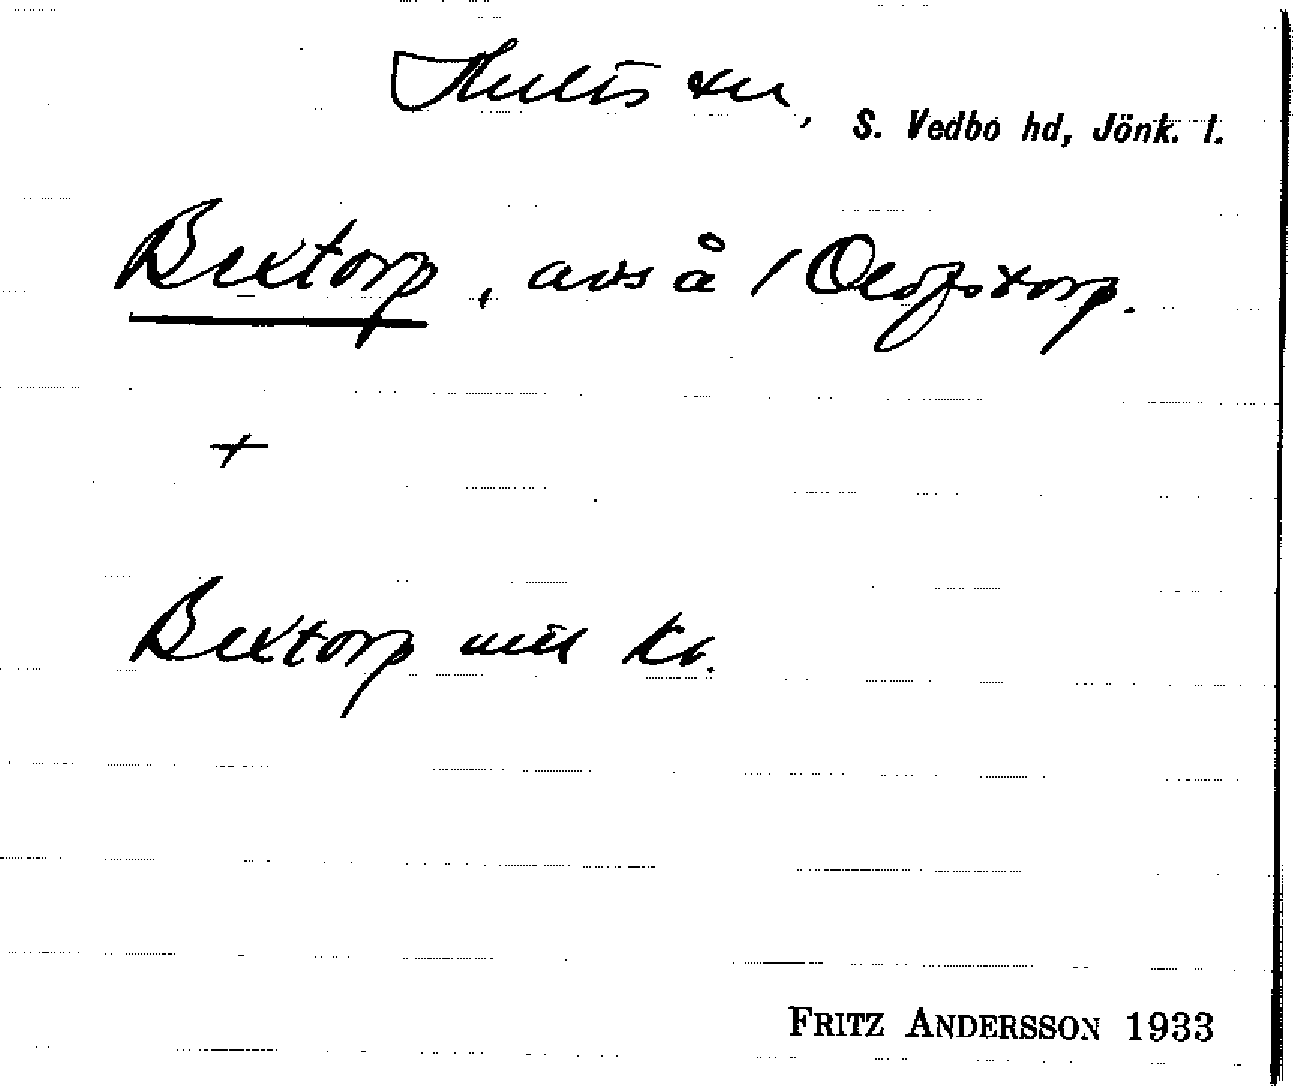 Hults sn, S. Vedbo hd, Jönk. l.
Bextorp, avs å / Olofstorp.
+
Bextorp
FRITZ ANDERSSON 1933